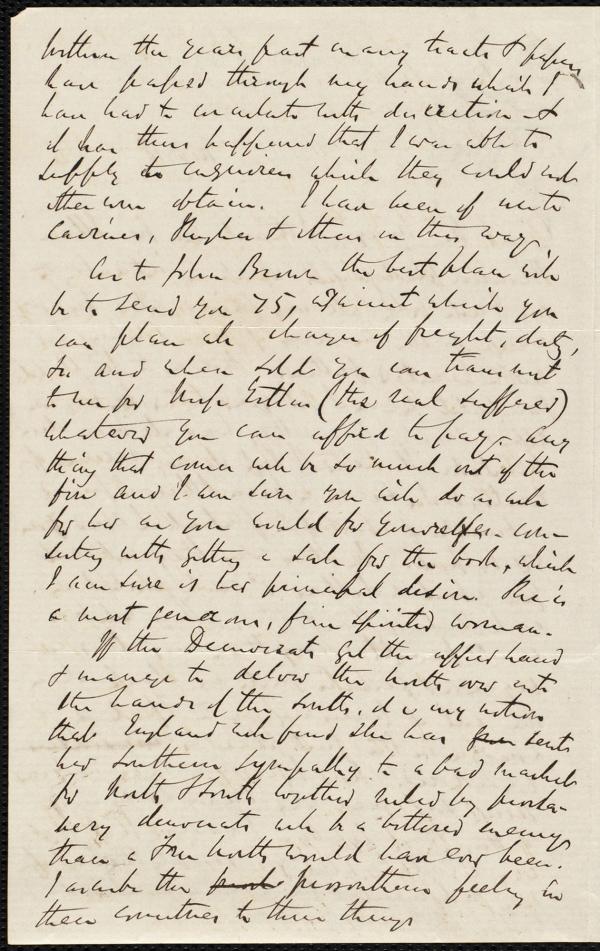 Within the years past many tracts & papers
have passed through my hands which I
have had to circulate with discretion & 
it has thus happened that I was able to
supply to enquirers which they could not
otherwise obtain. I have been of use to
Cairnes, Hughes & others in this way.
As to John Brown the best plan will
be to send you 75, against which you
can place all charges of freight, duty,
&c and when sold you can transmit
to me for Miss Estlin (the real sufferer)
whatever you can afford to pay - any
thing that comes will be so much out of the
fire and I am sure you will do as well
for her as you would for yourselfes - con-
sisting with getting a sale for the book, which
I am sure is her principal desire. She is
a most generous, fine spirited woman.
If the Democrats get the upper hand
& manage to deliver the North over into
the hands of the South, it is my notion
that England will find she has sent
her southern sympathy to a bad market
for North & South together ruled by prosla-
very democrats will be a bitterer enemy
than a Free North would have ever been.
I ascribe the prosouthern feeling in
these countries to three things